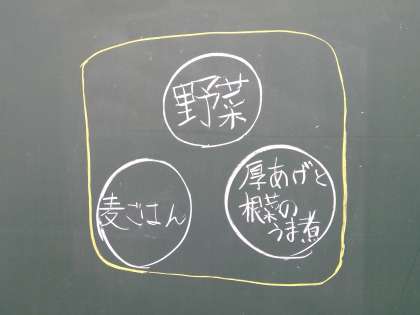 野菜
麦ごはん
厚あげと
根菜の
うま煮